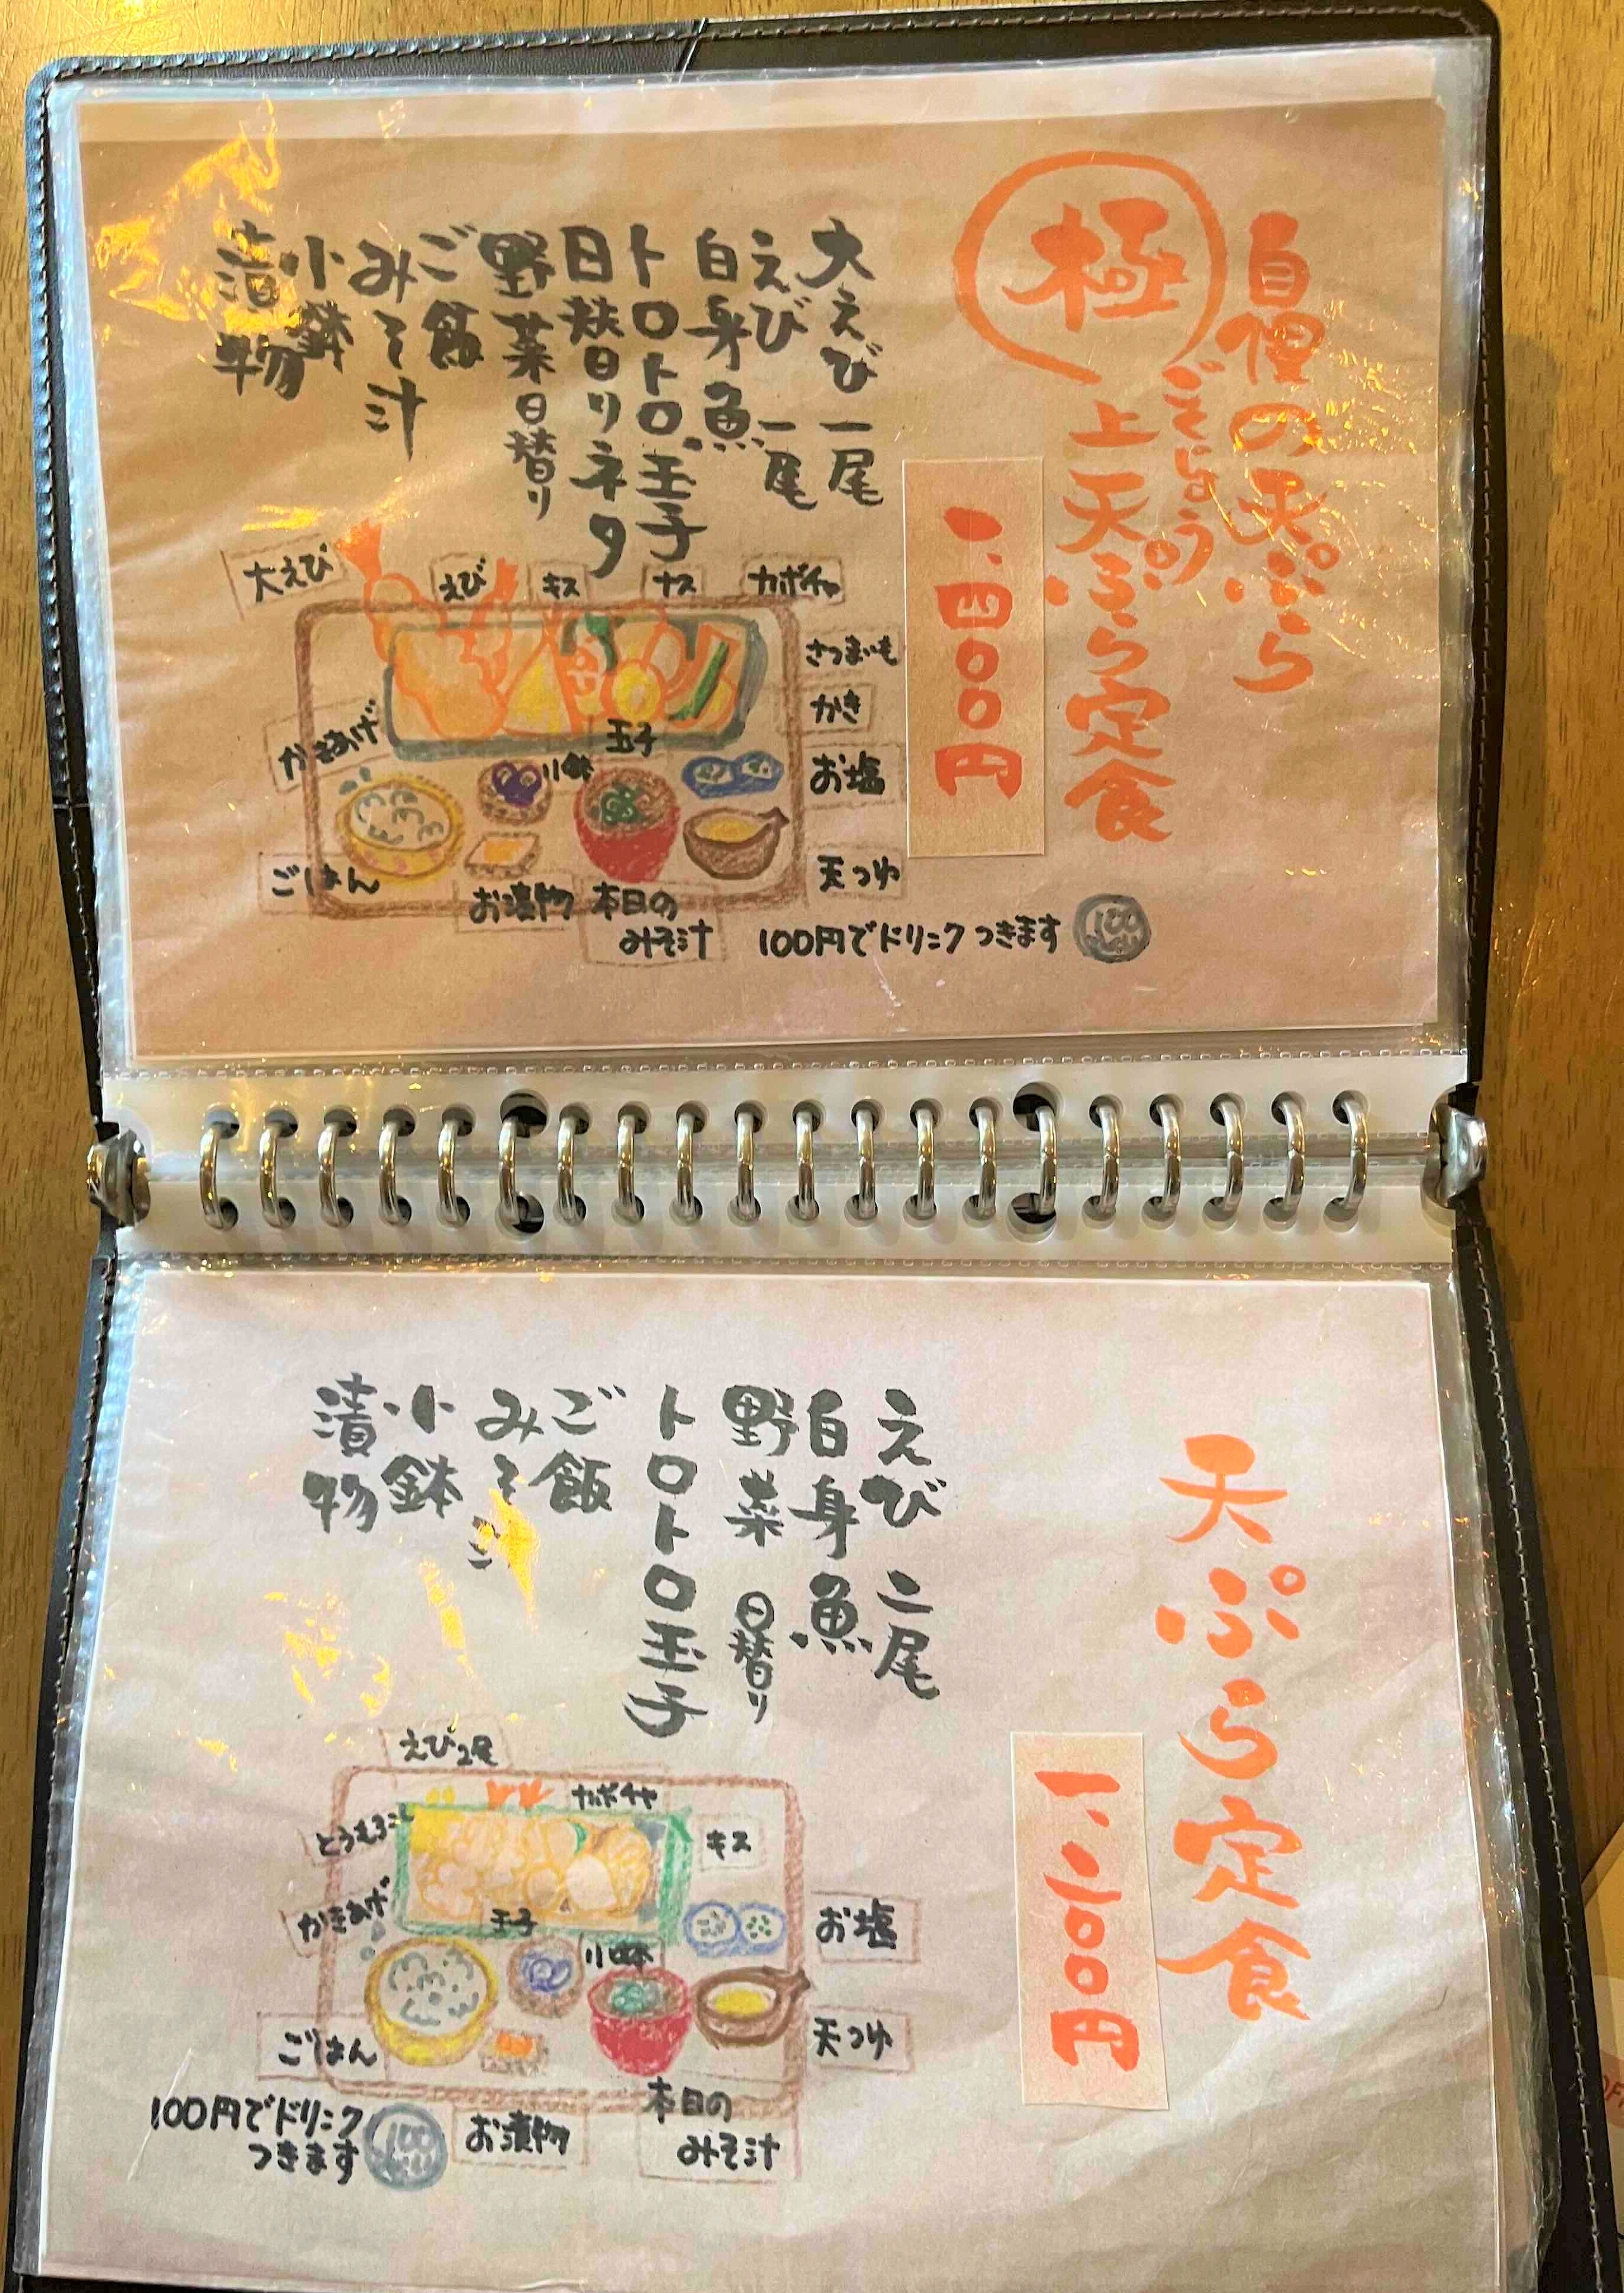 自慢の天ぷら
極上天ぷら定食
ごくじょう
一、四〇〇円
大えび一尾
えび一尾
白身魚
トロトロ玉子
日替日リネタ
野菜日替り
ご飯
みそ汁
小鉢
漬物
大えび
えび
キス
ナス
カボチャ
さつまいも
かき
かきあげ
玉子
小鉢
お塩
ごはん
お漬物
本日の
みそ汁
天つゆ
100円でドリンクつきます
100
天ぷら定食
一、二〇〇円
えび二尾
白身魚
野菜 日替り
トロトロ玉子
ご飯
みそ汁
小鉢
漬物
えび2尾
カボチャ
とうもろこし
キス
かきあげ
玉子
小鉢
お塩
ごはん
天つゆ
お漬物
本日の
みそ汁
100円でドリンク
つきます
100